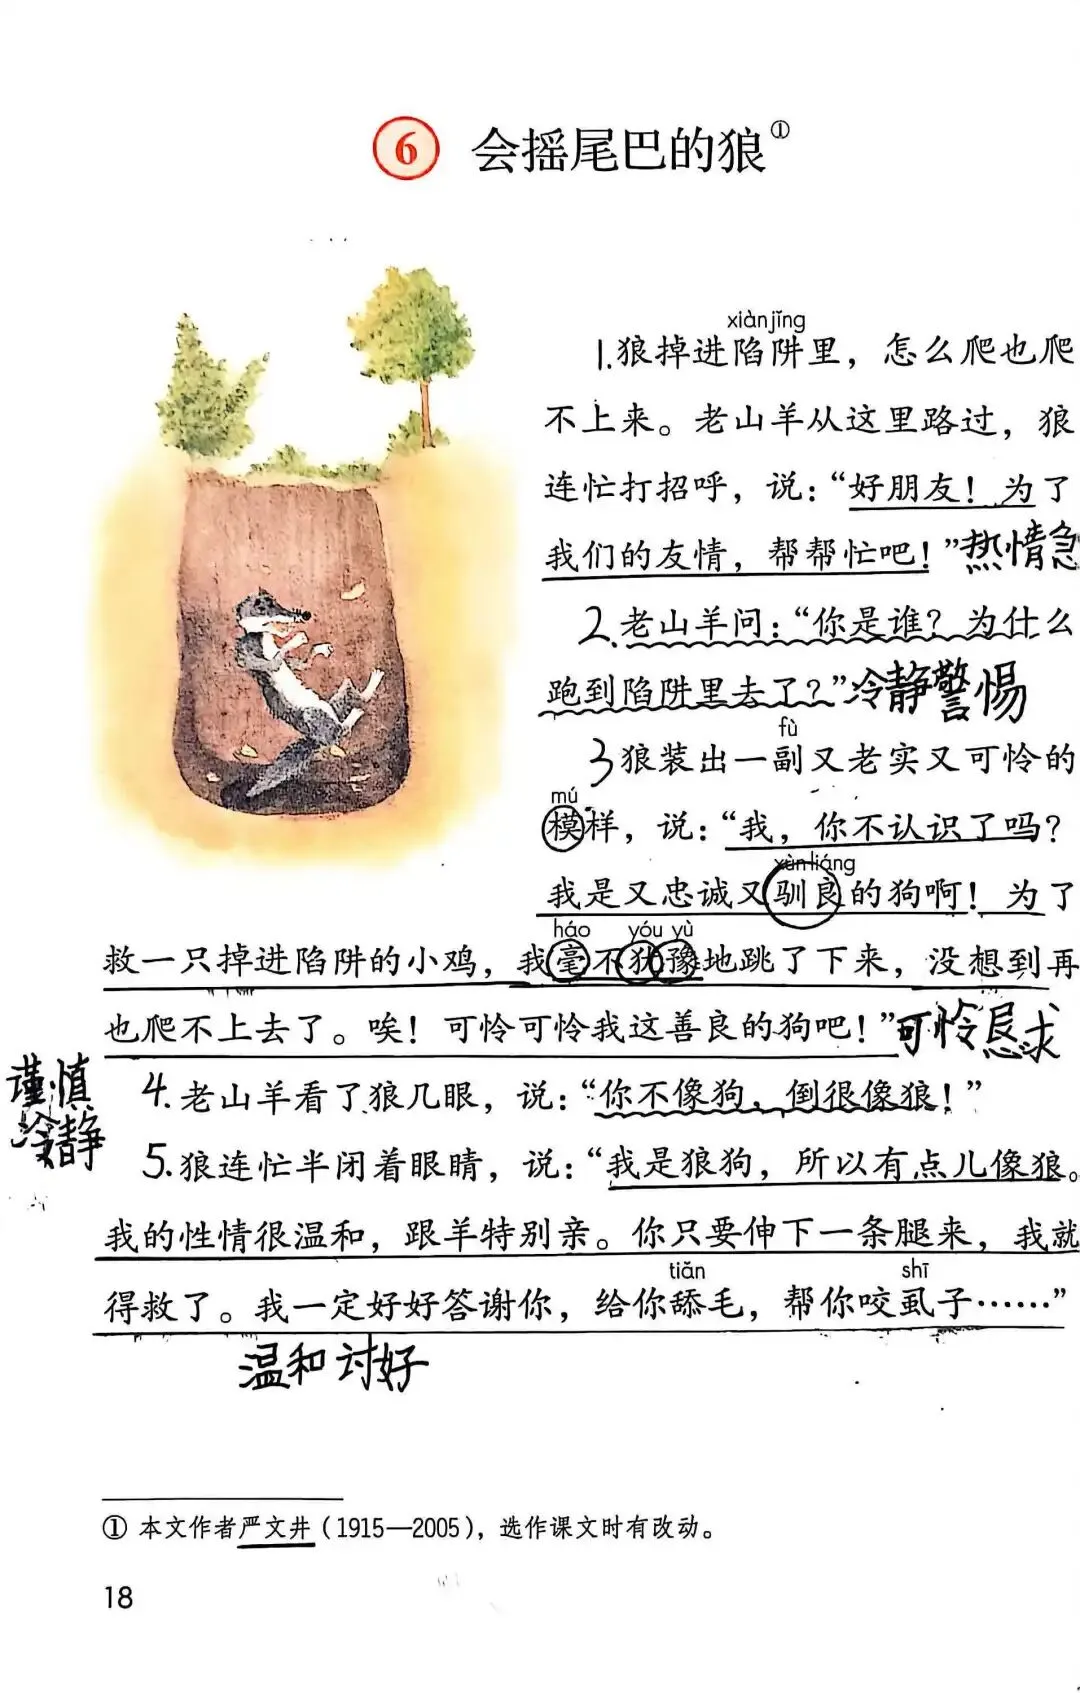 6 会摇尾巴的狼①
xiànjǐng
1.狼掉进陷阱里，怎么爬也爬
不上来。老山羊从这里路过，狼
连忙打招呼，说：“好朋友！为了
我们的友情，帮帮忙吧！”热情急
2.老山羊问：“你是谁？为什么
跑到陷阱里去了？”冷静警惕
fù
3狼装出一副又老实又可怜的
mú
模样，说：“我，你不认识了吗？
xùn liáng
我是又忠诚又驯良的狗啊！为了
háo yóu yù
救一只掉进陷阱的小鸡，我毫不犹豫地跳了下来，没想到再
也爬不上去了。唉！可怜可怜我这善良的狗吧！”可怜恳求
谨慎
冷静
4.老山羊看了狼几眼，说：“你不像狗，倒很像狼！”
5.狼连忙半闭着眼睛，说：“我是狼狗，所以有点儿像狼。
我的性情很温和，跟羊特别亲。你只要伸下一条腿来，我就
tiǎn shī
得救了。我一定好好答谢你，给你舔毛，帮你咬虱子……”
温和讨好
① 本文作者严文井（1915—2005），选作课文时有改动。
18